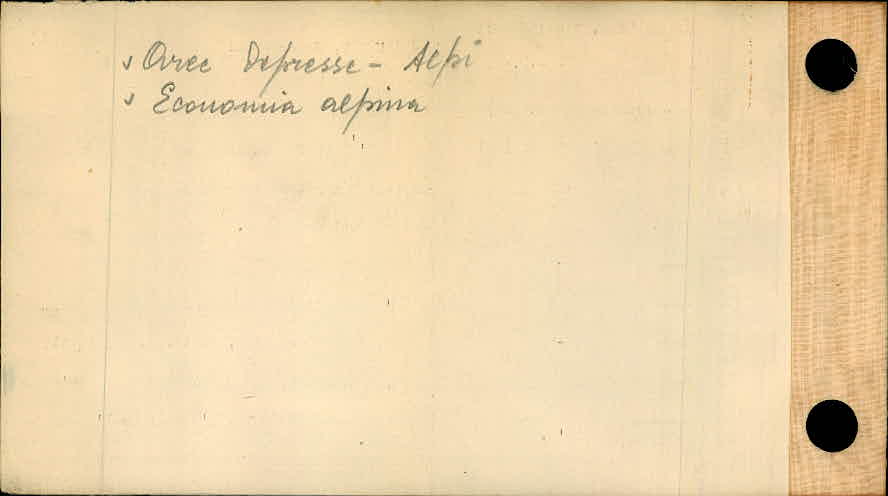 √ Aree Depresse - Alpi
√ Economia alpina